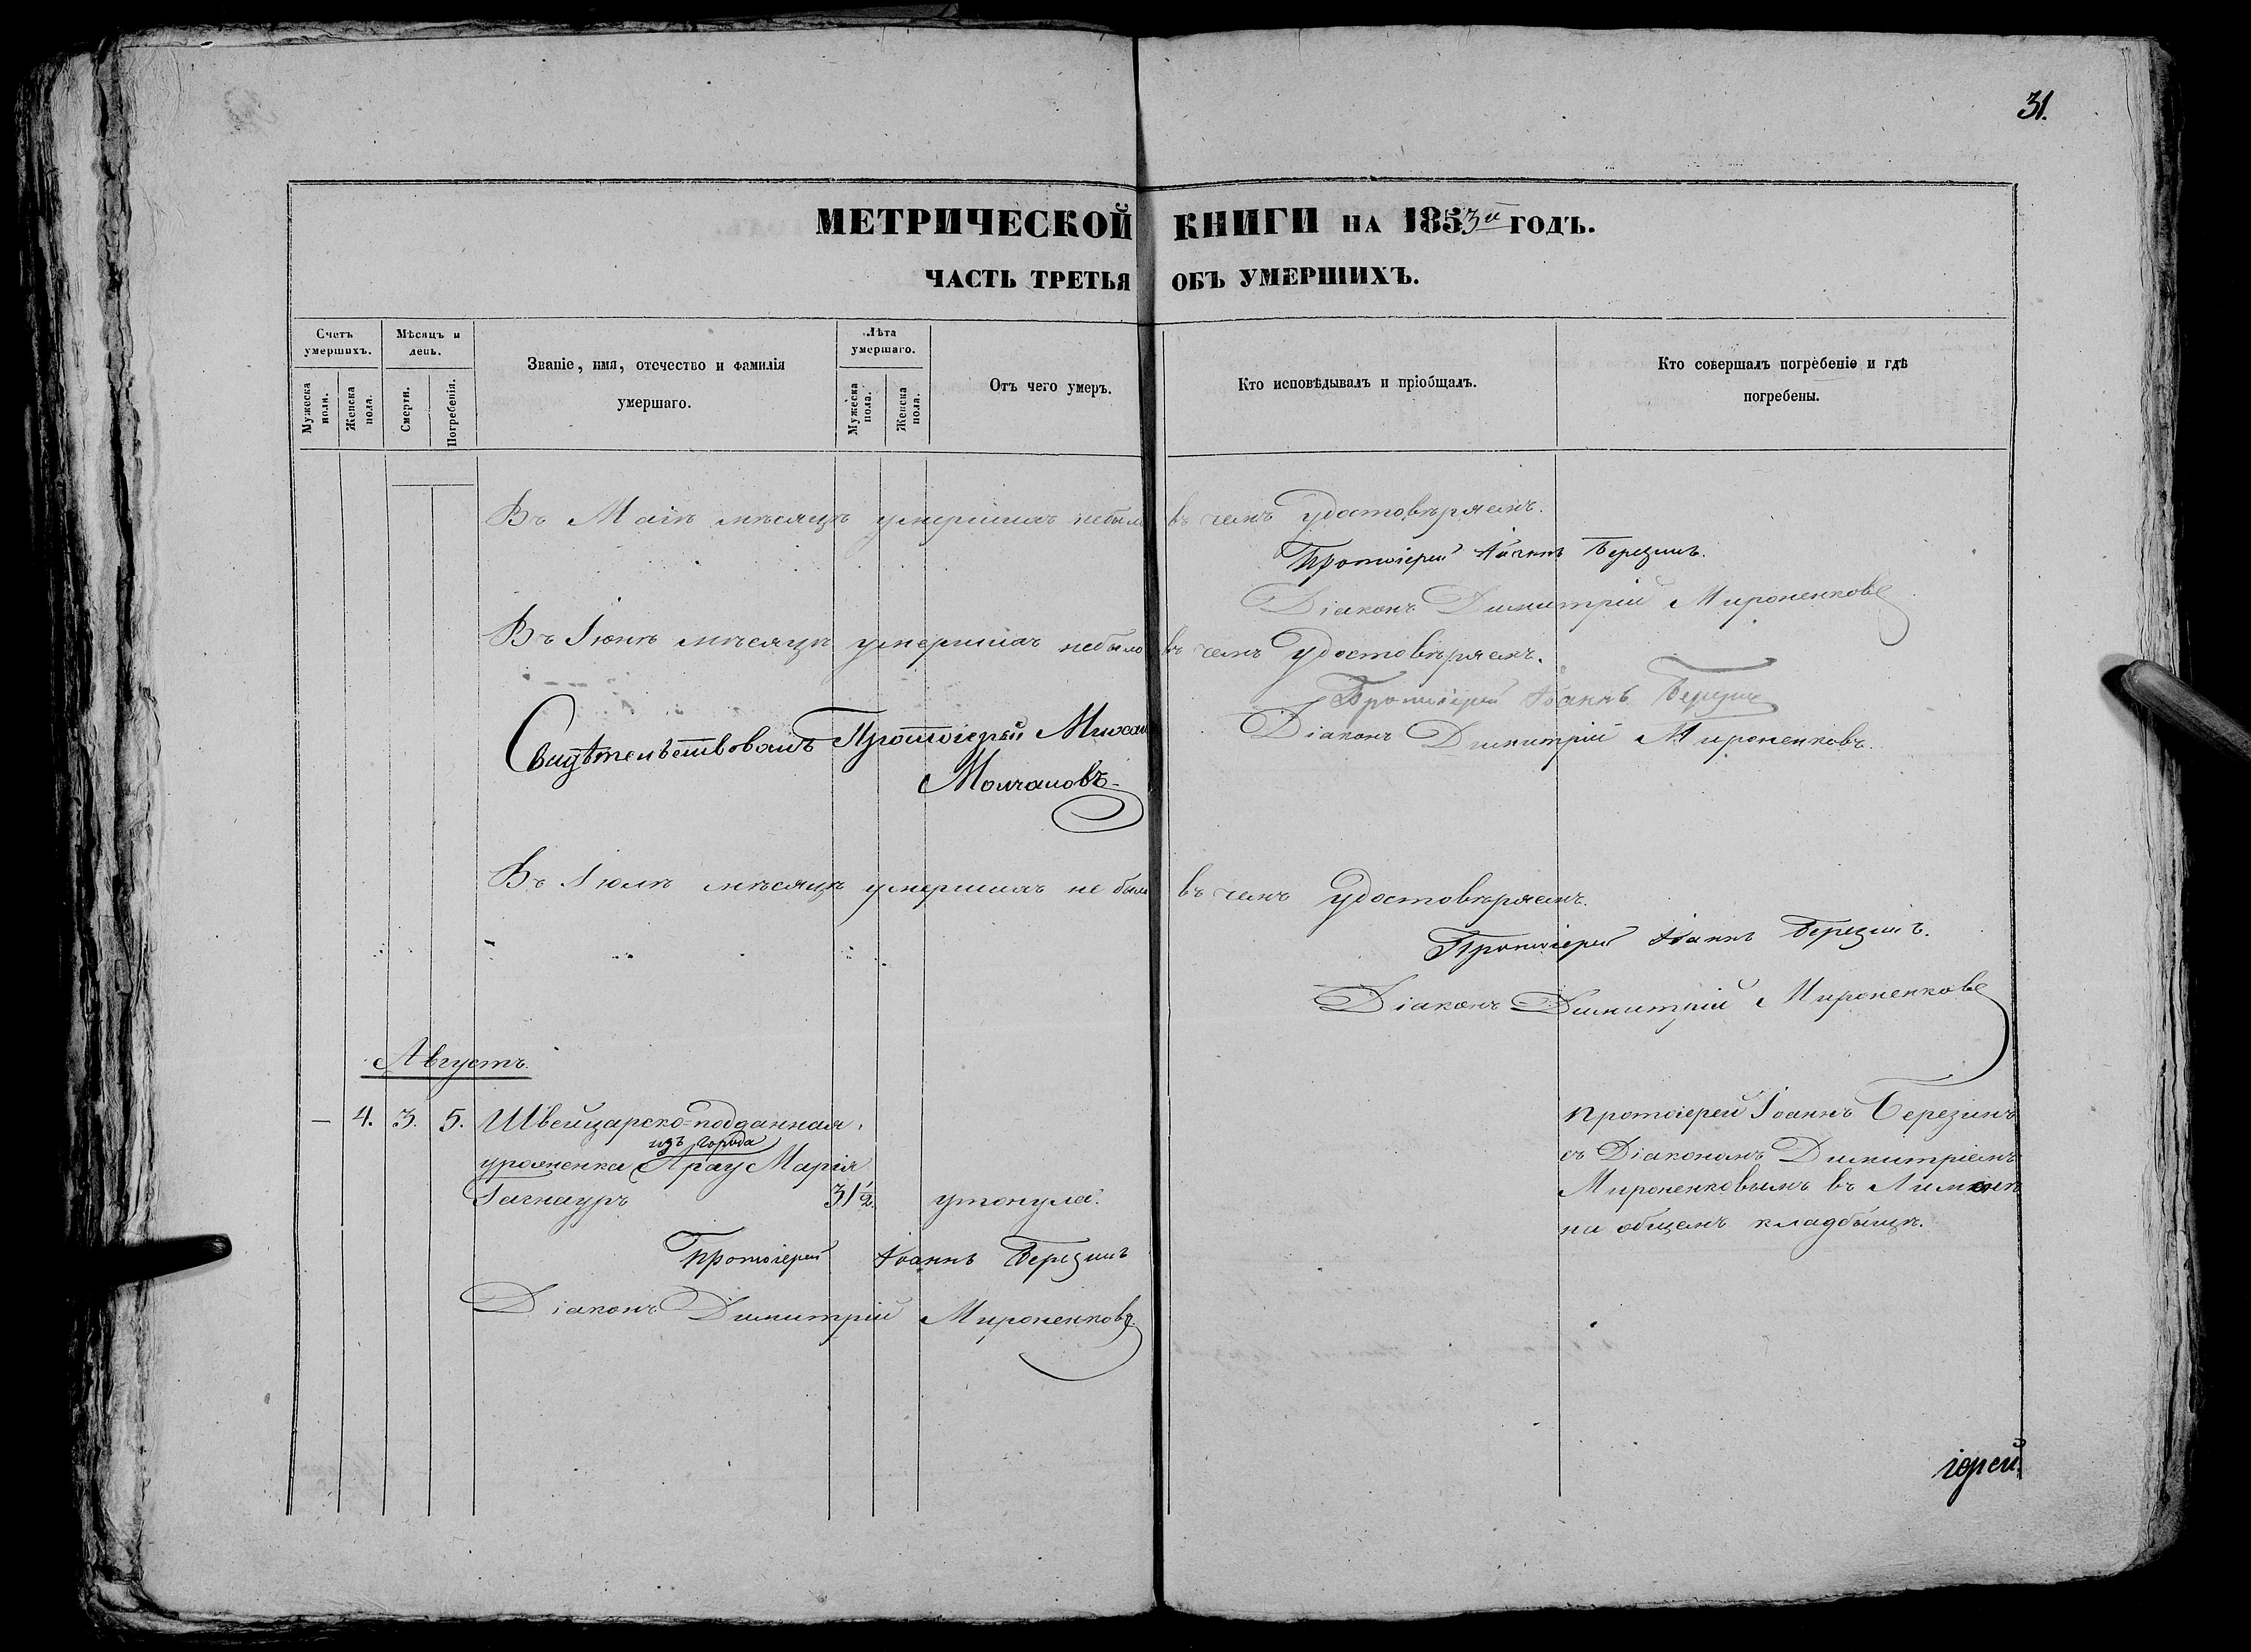 31.
МЕТРИЧЕСКОЙ КНИГИ НА 1853й ГОДЪ.
ЧАСТЬ ТРЕТЬЯ ОБЪ УМЕРШИХЪ.
Счетъ умершихъ.
Мужеска полн.
Женска пола.
Мѣсяцъ и день.
Смерти.
Погребенія.
Званіе, имя, отечество и фамилія
умершаго.
Лѣта умершаго.
Мужеска пола.
Женска пола.
Отъ чего умеръ.
Кто исповѣдывалъ и пріобщалъ.
Кто совершалъ погребеніе и гдѣ
погребены.
Въ Маіѣ мѣсяцѣ умершихъ небыло въ чемъ удостовѣряемъ.
Протоіерей Іоаннъ Березинъ.
Діаконъ Димитрій Мироненковъ
Въ Іюнѣ мѣсяцѣ умершихъ небыло въ чемъ удостовѣряемъ.
Протоіерей Іоаннъ Березинъ
Діаконъ Димитрій Мироненковъ.
Свидѣтельствовалъ Протоіерей Михаи
Молчановъ
Въ Іюлѣ мѣсяцѣ умершихъ не было въ чемъ удостовѣряемъ.
Протоіерей Іоаннъ Березинъ.
Діаконъ Димитрій Мироненковъ
Августъ.
— 4. 3. 5. Швейцарско-подданная,
изъ города
уроженка Арау Марія
31 1/2. утонула.
Протоіерей Іоаннъ Березинъ
съ Діакономъ Димитріемъ
Мироненковымъ въ
на общемъ кладбищѣ.
Протоіерей Іоаннъ Березинъ
Діаконъ Димитрій Мироненковъ.
іерей